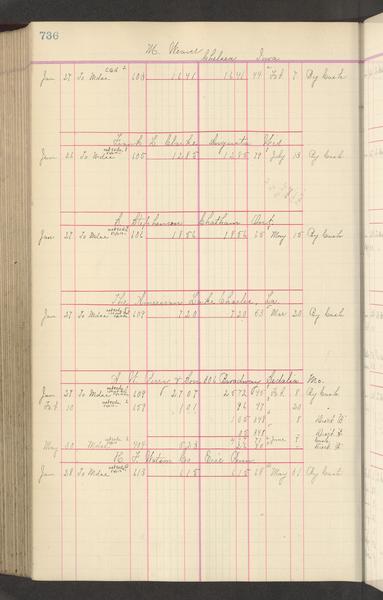 736
M. Weaver Chelsea Iowa
Jan 27 To Mdse 608 16 41 16 41 44 Feb 7 By Cash
Frank L. Clarke Augusta Wis
Jan 26 To Mdse 605 12 85 12 85 29 July 15 By Cash
Stephenson Chatham Ont.
Jan 27 To Mdse 606 18 56 18 56 65 May 15 By Cash
The American Lake Charles, La.
Jan 27 To Mdse 609 7 20 7 20 63 Mar 20 By Cash
Perry & Son 806 Broadway Sedalia Mo.
Jan 27 To Mdse 609 27 07 25 72 45 Feb 8 By Cash
Feb 10 657 1 01 96 47 20 "
1 05 398 8
05 398
May 20 Mdse 909 8 23 June 9 Cash
H. F. Watson Co Erie Penn
Jan 28 To Mdse 613 6 15 6 15 58 May 11 By Cash